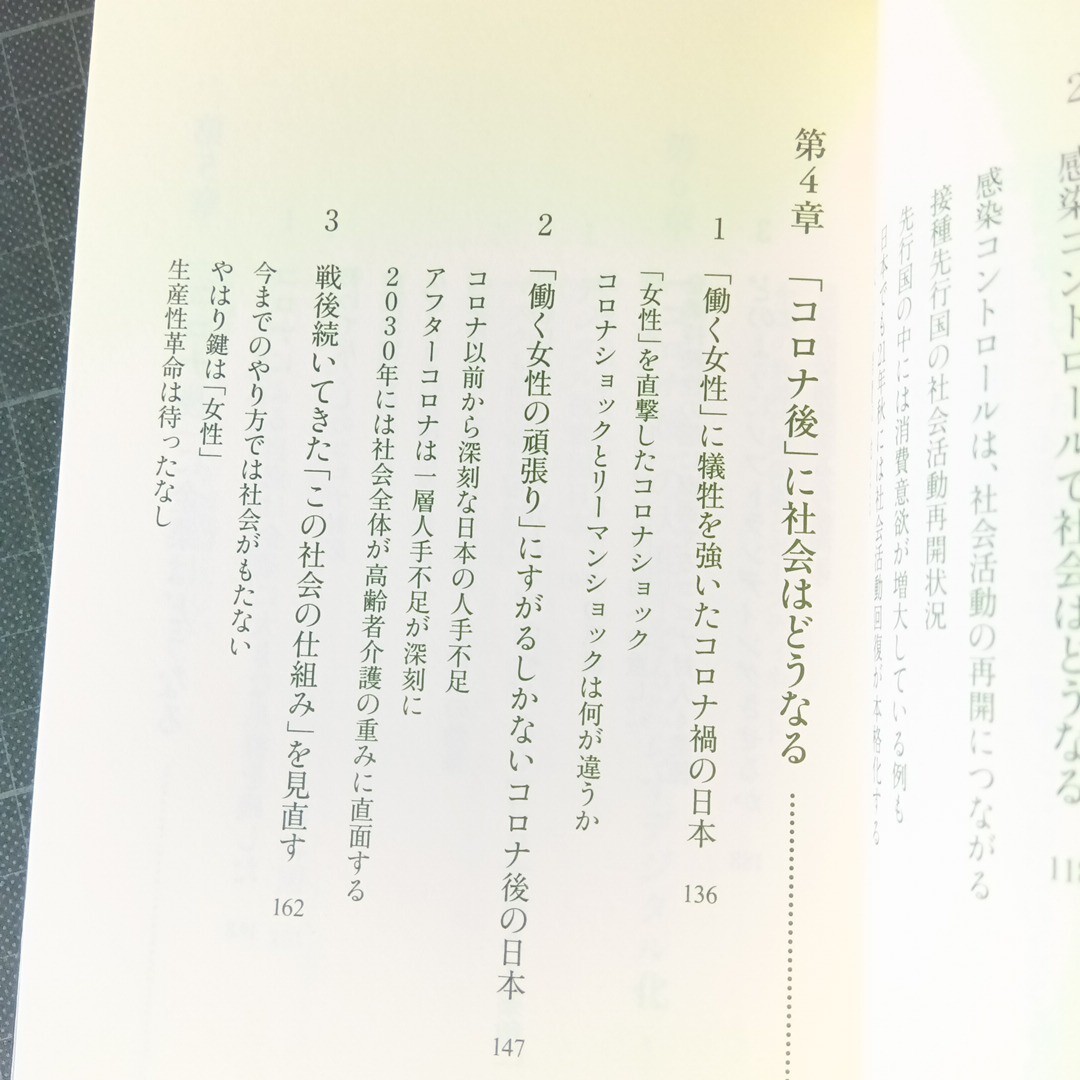 2 感染コントロールで社会はどうなる 118
感染コントロールは、社会活動の再開につながる
接種先行国の社会活動再開状況
先行国の中には消費意欲が増大している例も
日本でも21年秋には社会活動回復が本格化する
第4章 「コロナ後」に社会はどうなる
1 「働く女性」に犠牲を強いたコロナ禍の日本 136
「女性」を直撃したコロナショック
コロナショックとリーマンショックは何が違うか
2 「働く女性の頑張り」にすがるしかないコロナ後の日本 147
コロナ以前から深刻な日本の人手不足
アフターコロナは一層人手不足が深刻に
2030年には社会全体が高齢者介護の重みに直面する
3 戦後続いてきた「この社会の仕組み」を見直す 162
今までのやり方では社会がもたない
やはり鍵は「女性」
生産性革命は待ったなし